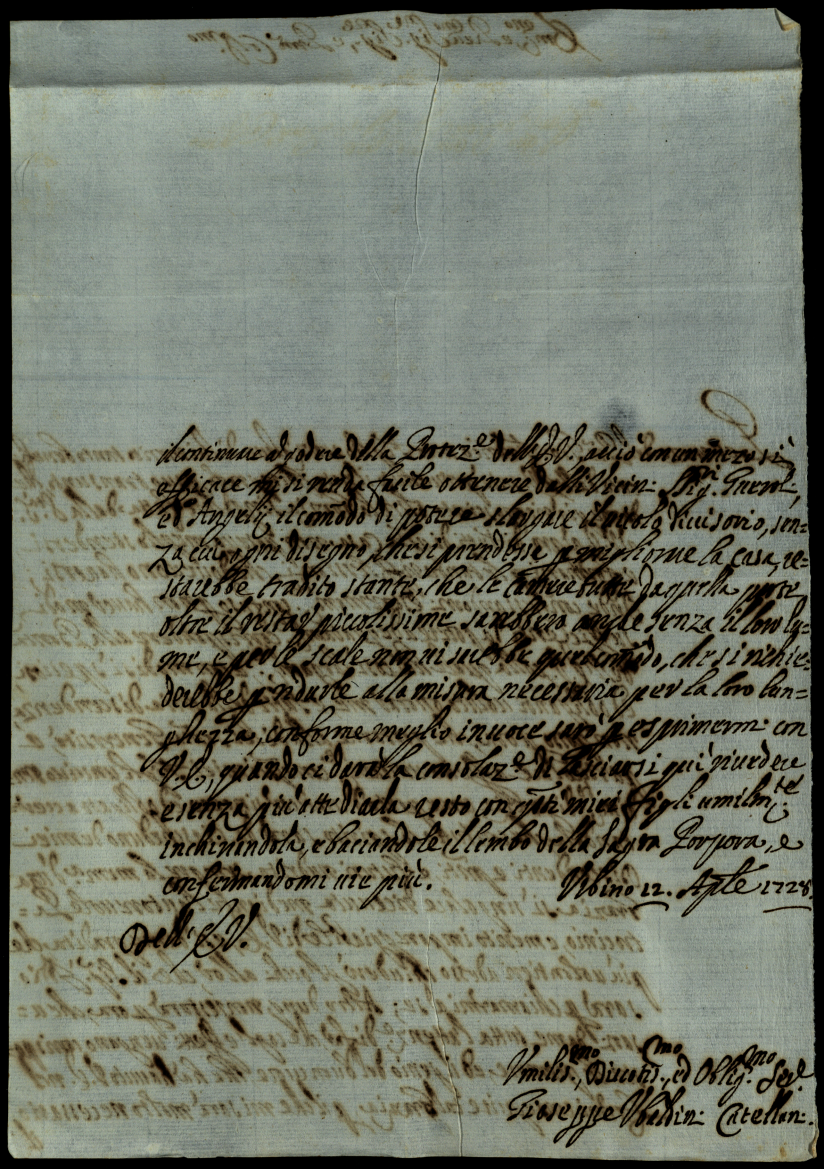 il continuare a godere della Protez.e dell'E.V. acciò con un mezzo sì
efficace mi si renda facile ottenere dalli Vicin: Sig.ri
ed Angeli il comodo di potere slargare il vicolo divisorio, sen=
za cui ogni disegno, che si prendesse p migliorare la casa, re=
starebbe tradito stante, che le camere tutte da quella parte
oltre il restar piccolissime sarebbero anche senza il loro lu=
me, e per le scale non vi sarebbe quel comodo, che si richie=
derebbe p ridurle alla misura necessaria per la loro lun=
ghezza, conforme meglio in voce sarò p esprimerm: con
V.E., quando ci darà la consolaz.e di lasciarsi quì rivedere
e senza più attediarla resto con q̃ti miei figli umilm.te
inchinandola, e baciandole il lembo della Sagra Porpora, e
confermandomi vie più. Urbino 12. Aple 1728.
Dell'E.V.
Umilis.mo, Divotis.mo, ed Oblig.mo Ser.e
Gioseppe Ubaldin: Catellan: